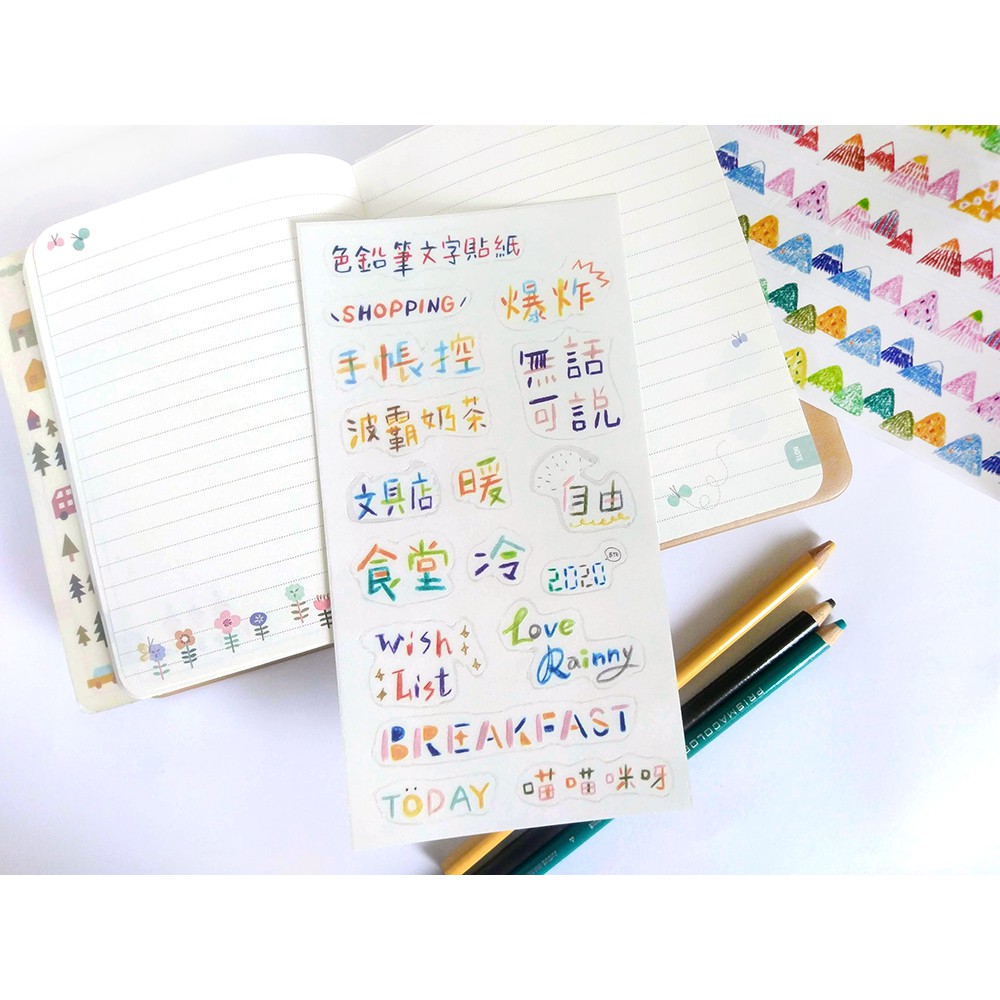 色鉛筆文字貼紙
SHOPPING
爆炸
手帳控
無話
可說
波霸奶茶
文具店
暖
自由
食堂
冷
2020
BYE
Wish
List
Love
Rainny
BREAKFAST
TODAY
喵喵咪呀
PRISMACOLOR